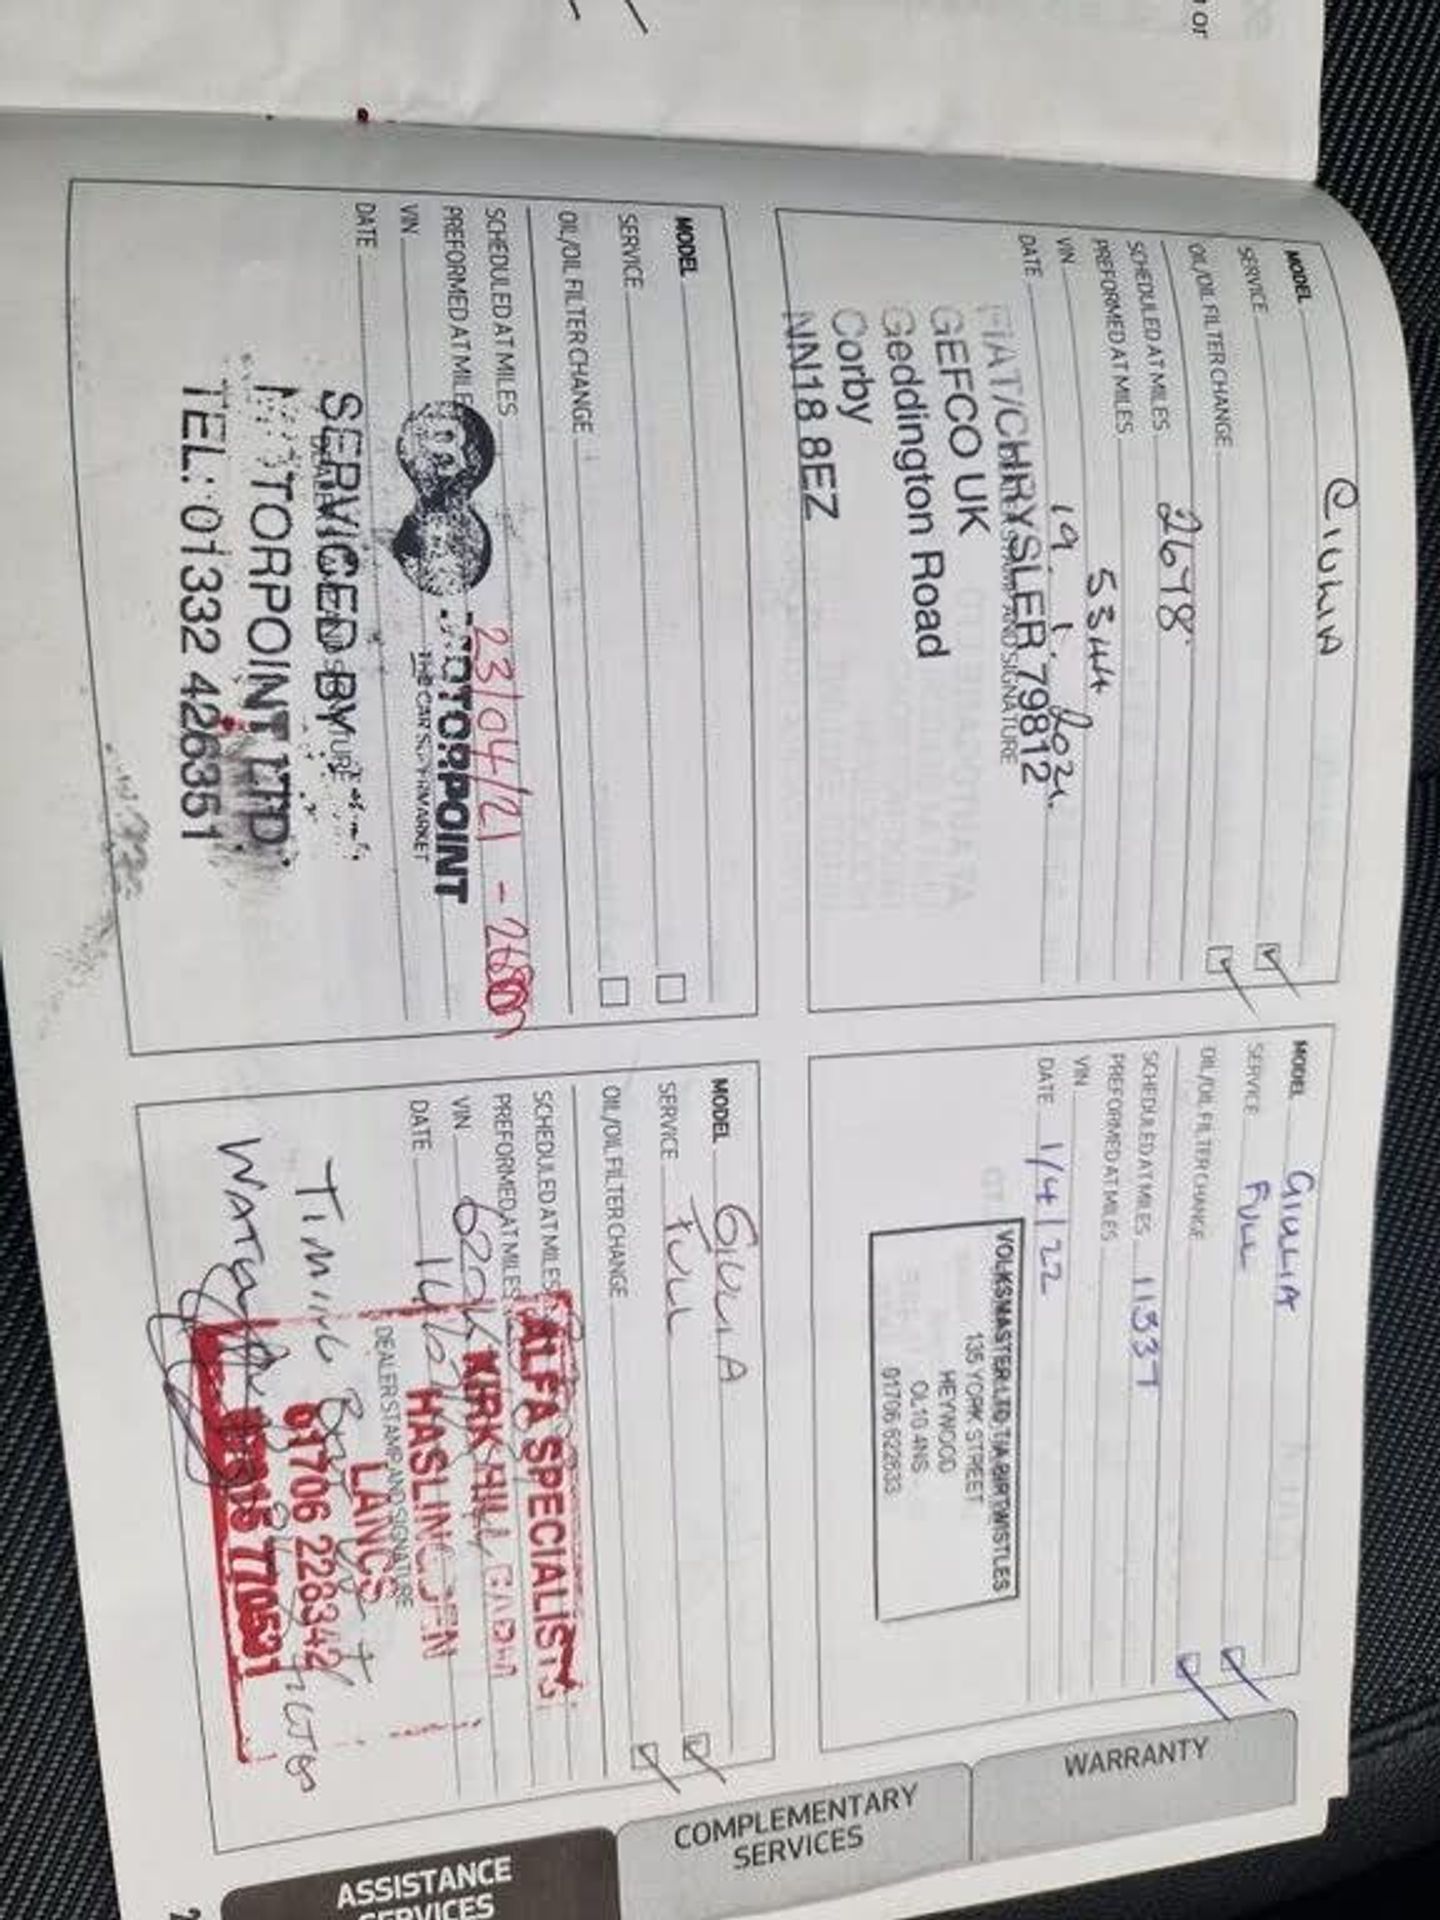 or
MODEL GIULIA
SERVICE
OIL/OIL FILTER CHANGE
SCHEDULED AT MILES 2678
PREFORMED AT MILES 5344
VIN
19. 1. 2021
DATE
DEALER STAMP AND SIGNATURE
FIAT/CHRYSLER 79812
GEFCO UK
Geddington Road
Corby
NN18 8EZ
MODEL GIULIA
SERVICE FULL
OIL/OIL FILTER CHANGE
SCHEDULED AT MILES 11337
PREFORMED AT MILES
VIN
DATE 1/4/22
VOLKSMASTER LTD T/A BIRTWISTLES
135 YORK STREET
HEYWOOD
OL10 4NS
01706 622633
MODEL
SERVICE
OIL/OIL FILTER CHANGE
SCHEDULED AT MILES
23/04/21 -
PREFORMED AT MILES
MOTORPOINT
THE CAR SUPERMARKET
VIN
DATE
DEALER STAMP AND SIGNATURE
SERVICED BY
MOTORPOINT LTD.
TEL: 01332 426351
MODEL GIULIA
SERVICE FULL
OIL/OIL FILTER CHANGE
SCHEDULED AT MILES
PREFORMED AT MILES
VIN
DATE
DEALER STAMP AND SIGNATURE
ALFA SPECIALISTS
KIRK HILL
HASLINGDEN
LANCS
01706 228342
770521
TIMING BELT +
WATER
WARRANTY
COMPLEMENTARY
SERVICES
ASSISTANCE
SERVICES